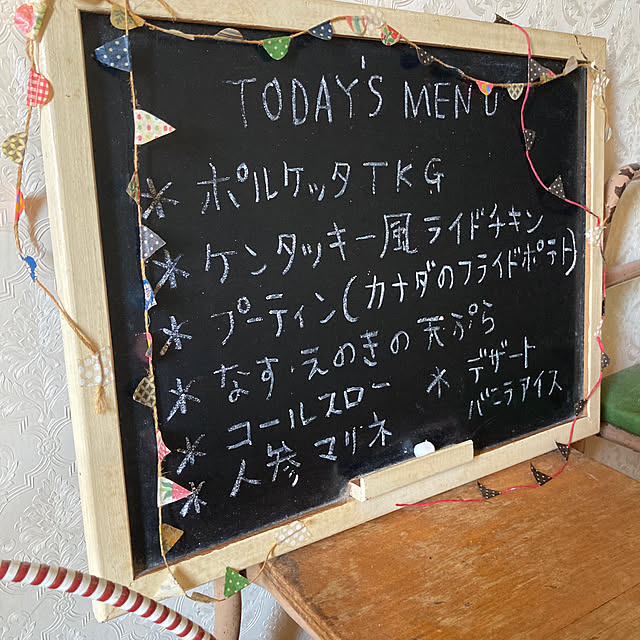 TODAY'S MENU
* ポルケッタTKG
* ケンタッキー風ライドチキン
* プーティン(カナダのフライドポテト)
* なす・えのきの天ぷら
* コールスロー
* 人参マリネ
* デザート
バニラアイス